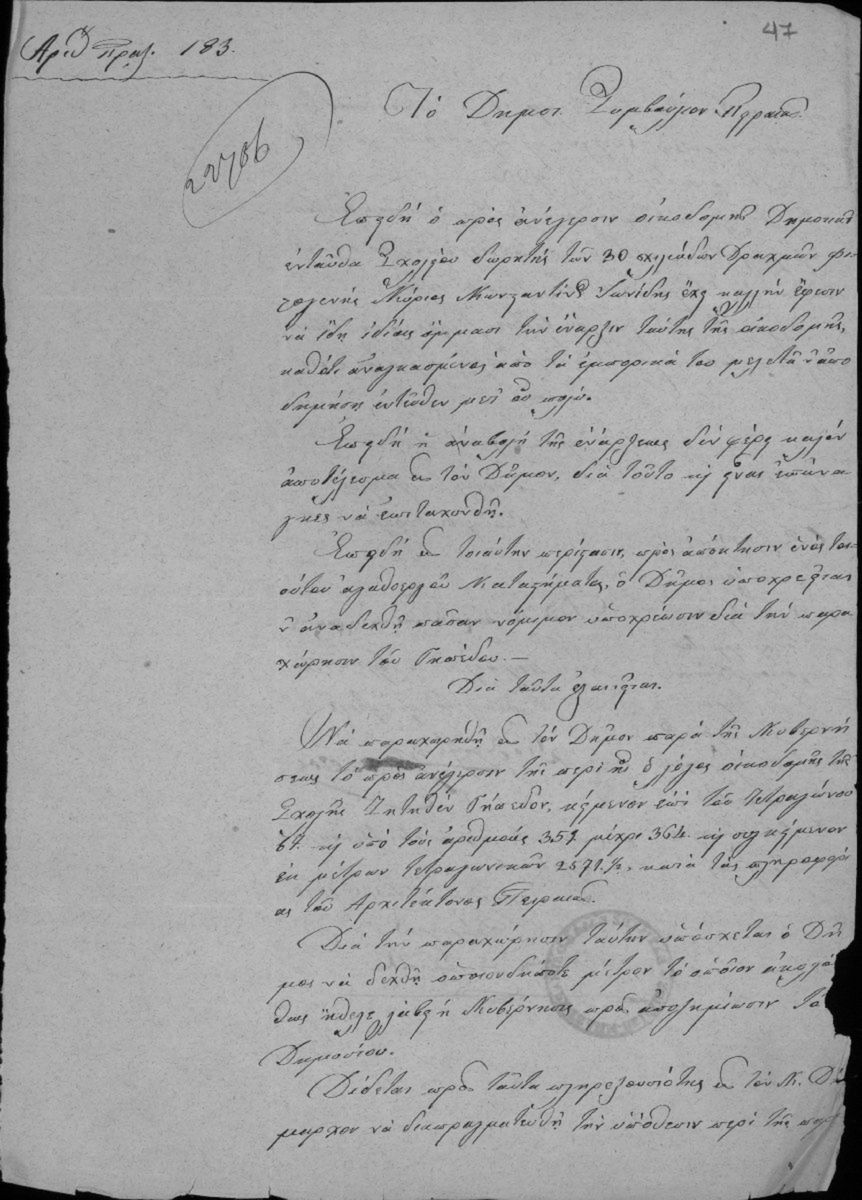 47
Αριθ Πραξ. 183.
22786
Τὸ Δημοτ. Συμβούλιον Πειραιῶς.
Ἐπειδὴ ὁ πρὸς ἀνέγερσιν οἰκοδομῆς Δημοτικοῦ
ἐνταῦθα Σχολείου δωρητὴς τῶν 30 χιλιάδων Δραχμῶν φι-
λογενὴς Κύριος Κωνσταντῖνος Ἰωνίδης ἔχει καλὴν ἔφεσιν
νὰ ἴδῃ ἰδίοις ὄμμασι τὴν ἔναρξιν ταύτης τῆς οἰκοδομῆς,
καθότι ἀναγκασμένος ἀπὸ τὰ ἐμπορικά του μελετᾷ ν' ἀπο
δημήσῃ ἐντεῦθεν μετ' οὐ πολύ.
Ἐπειδὴ ἡ ἀναβολὴ τῆς ἐνάρξεως δὲν φέρει καλὸν
ἀποτέλεσμα εἰς τὸν Δῆμον, διὰ τοῦτο καὶ εἶναι ἐπάναγ
κες νὰ ἐπιταχυνθῇ.
Ἐπειδὴ εἰς τοιαύτην περίστασιν, πρὸς ἀπόκτησιν ἑνὸς τοι-
ούτου ἀγαθοεργοῦ Καταστήματος, ὁ Δῆμος ὑποχρεοῦται
ν' ἀναδεχθῇ πᾶσαν νόμιμον ὑποχρέωσιν διὰ τὴν παρα
χώρησιν τοῦ Γηπέδου. —
Διὰ ταῦτα
Νὰ παραχωρηθῇ εἰς τὸν Δῆμον παρὰ τῆς Κυβερνή
σεως τὸ πρὸς ἀνέγερσιν τῆς περὶ ἧς ὁ λόγος οἰκοδομῆς τῆς
Σχολῆς ζητηθὲν Γήπεδον, κείμενον ἐπὶ τοῦ τετραγώνου
67. καὶ ὑπὸ τοὺς ἀριθμοὺς 357 μέχρι 364. καὶ συγκείμενον
ἐκ μέτρων τετραγωνικῶν 2571 ½, κατὰ τὰς πληροφορί
ας τοῦ Ἀρχιτέκτονος Πειραιῶς.
Διὰ τὴν παραχώρησιν ταύτην ὑπόσχεται ὁ Δῆ
μος νὰ δεχθῇ ὁποιονδήποτε μέτρον τὸ ὁποῖον ἀκολού
θως ἤθελε λάβῃ ἡ Κυβέρνησις πρὸς ἀποζημίωσιν τοῦ
Δημοσίου.
Δίδεται πρὸς ταῦτα πληρεξουσιότης εἰς τὸν Κ. Δή
μαρχον νὰ διαπραγματευθῇ τὴν ὑπόθεσιν περὶ τῆς